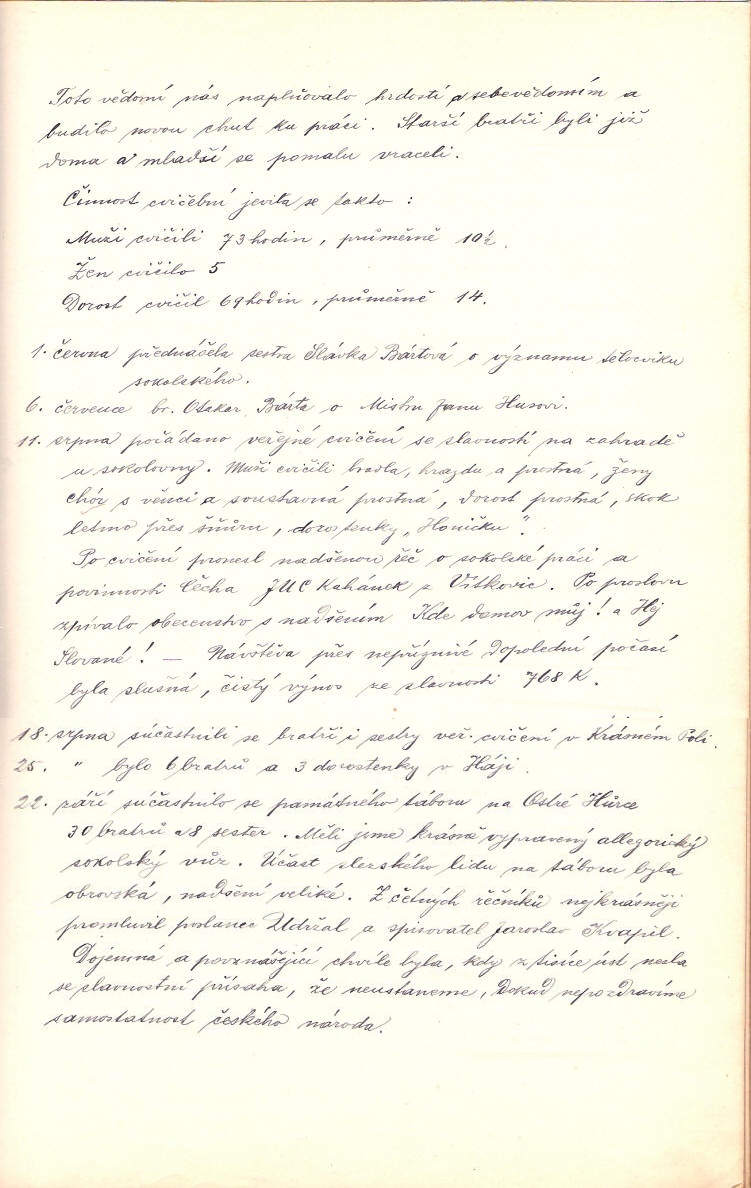 Toto vědomí nás naplňovalo hrdostí a sebevědomím a
budilo novou chuť ku práci. Starší bratři byli již
doma a mladší se pomalu vraceli.
Činnost cvičební jevila se takto :
Muži cvičili 73 hodin, průměrně 10½.
Žen cvičilo 5
Dorost cvičil 69 hodin, průměrně 14.
1. června přednášela sestra Slávka Bártová o významu tělocviku
sokolského.
6. července br. Otakar Bárta o Mistru Janu Husovi.
11. srpna pořádano veřejné cvičení se slavností na zahradě
u sokolovny. Muži cvičili bradla, hrazdu a prostná, ženy
chór s věnci a soustavná prostná, dorost prostná, skok
letmo přes šňůru, dorostenky „Honičku".
Po cvičení pronesl nadšenou řeč o sokolské práci a
povinnosti Čecha JUC Kahánek z Vítkovic. Po proslovu
zpívalo obecenstvo s nadšením Kde domov můj! a Hej
Slované! — Návštěva přes nepříznivé dopolední počasí
byla slušná, čistý výnos ze slavnosti 768 K.
18. srpna súčastnili se bratři i sestry veř. cvičení v Krásném Poli.
25. " bylo 6 bratrů a 3 dorostenky v Háji.
22. září súčastnilo se památného táboru na Ostré Hůrce
30 bratrů a 8 sester. Měli jsme krásně vypravený allegorický
sokolský vůz. Účast slezského lidu na táboru byla
obrovská, nadšení veliké. Z četných řečníků nejkrásněji
promluvil poslanec Udržal a spisovatel Jaroslav Kvapil.
Dojemná a povznášející chvíle byla, kdy z tisíce úst nesla
se slavnostní přísaha, že neustaneme, dokud nepozdravíme
samostatnost českého národa.